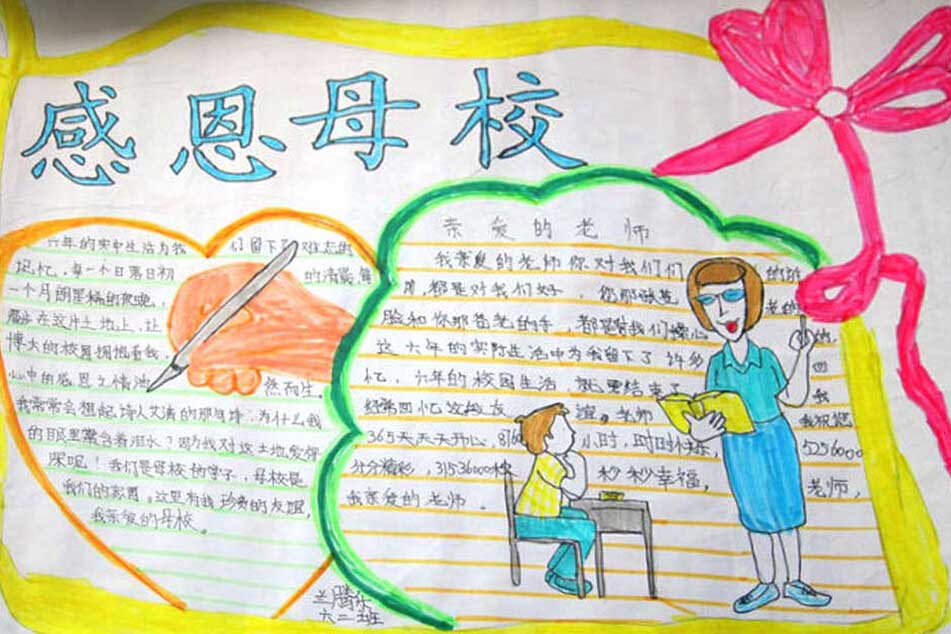 感恩母校
六年的实中生活为我们留下了难忘的
记忆,每一个日落日初的清晨,每
一个月朗星稀的夜晚,
漫步在这片土地上,让
博大的校园拥抱着我,
心中的感恩之情油然而生。
我常常会想起诗人艾青的那句诗:为什么我
的眼里常含着泪水?因为我对这土地爱得
深呢!我们是母校的学子,母校是
我们的家园。这里有我珍贵的友谊,
我亲爱的母校。
亲爱的老师
我亲爱的老师你对我们们的
都是对我们好。您那张苍老的
脸和你那苍老的手,都是替我们操心的,
这六年的实际生活中为我留下了许多回
忆,六年的校园生活就要结束了,我
经常回忆这些友谊。老师我祝您
365天天天开心,8760小时,时时快乐,5256000
分分精彩,31536000秒秒秒幸福,老师,
我亲爱的老师。
六二班